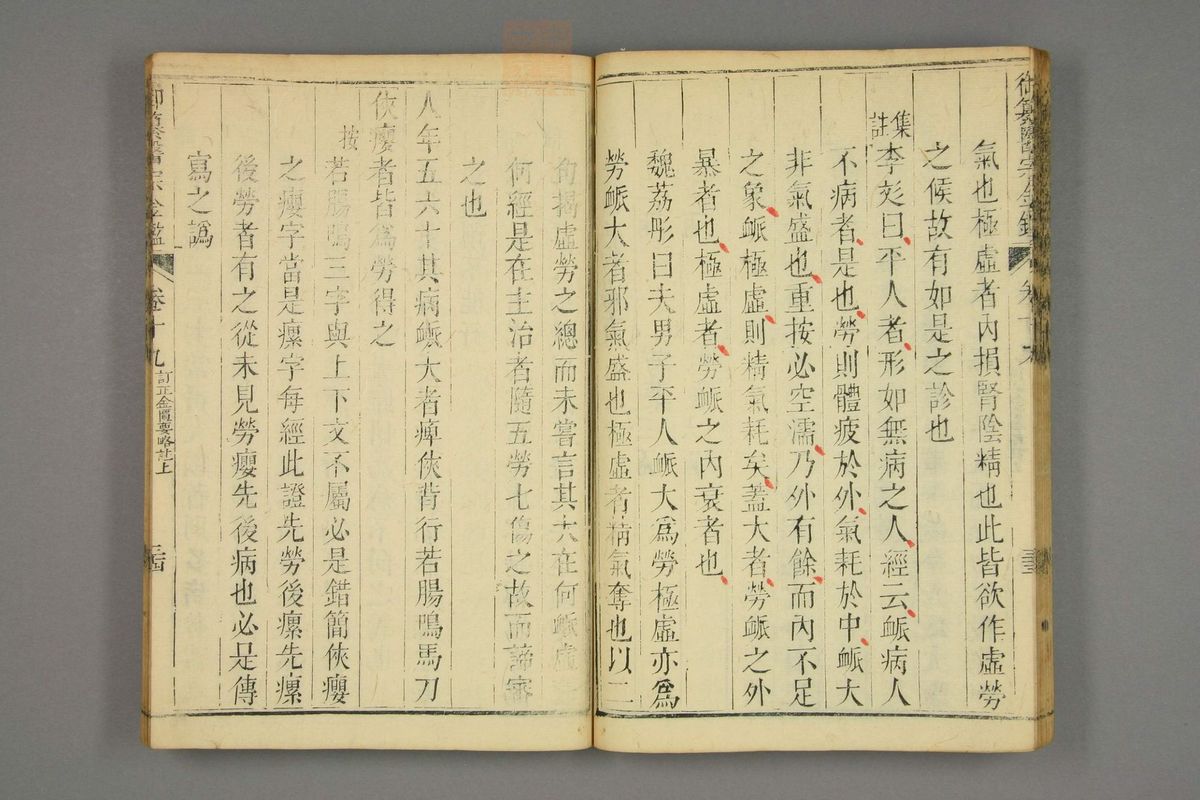 氣也極虛者內損腎陰精也此皆欲作虛勞
之候故有如是之診也
集註李彣曰平人者形如無病之人經云脈病人
不病者是也勞則體疲於外氣耗於中脈大
非氣盛也重按必空濡乃外有餘而內不足
之象脈極虛則精氣耗矣蓋大者勞脈之外
暴者也極虛者勞脈之內衰者也
魏荔彤曰夫男子平人脈大為勞極虛亦為
勞脈大者邪氣盛也極虛者精氣奪也以二
句揭虛勞之總而未嘗言其大在何脈虛
何經是在主治者隨五勞七傷之故而諦審
之也
人年五六十其病脈大者痺俠背行若腸鳴馬刀
俠癭者皆為勞得之
按若腸鳴三字與上下文不屬必是錯簡俠癭
之癭字當是瘰字每經此證先勞後瘰先瘰
後勞者有之從未見勞癭先後病也必是傳
寫之譌
御纂醫宗金鑑 卷十九 訂正金匱要略註上